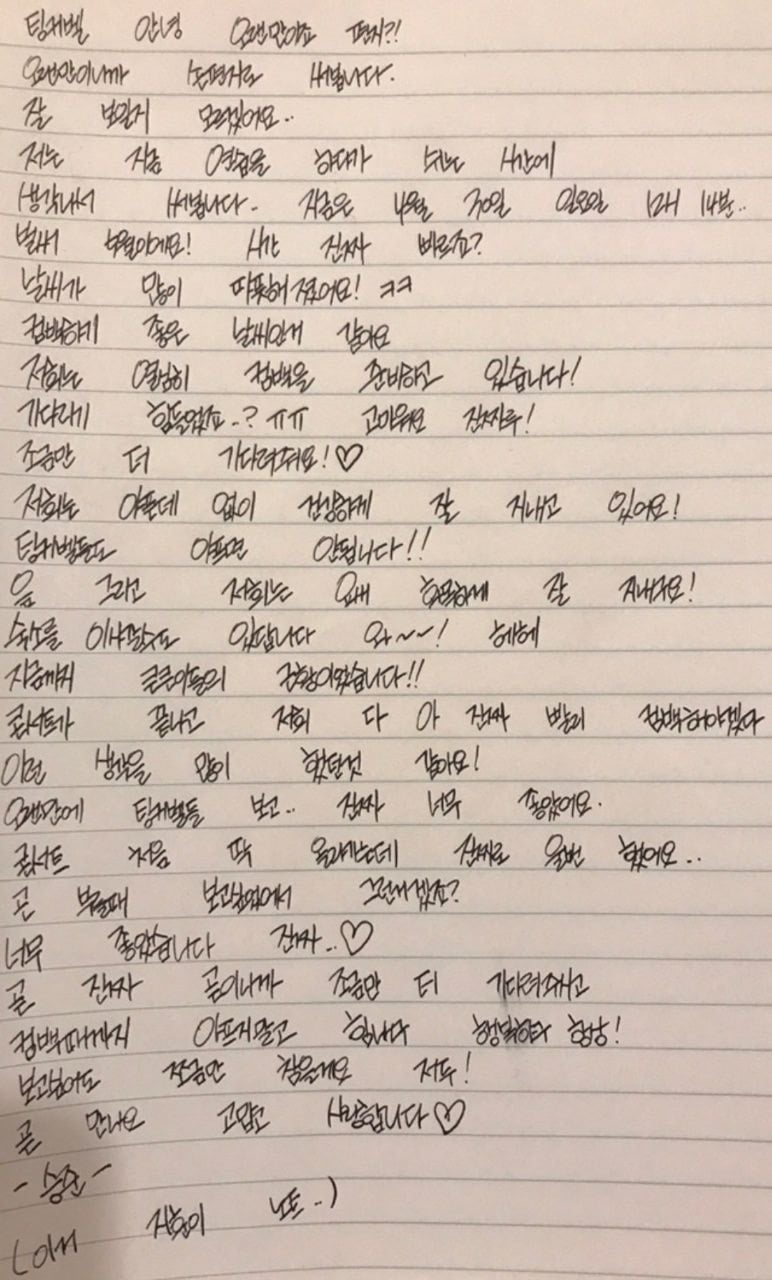 팅커벨 안녕 오랜만이죠 편지?!
오랜만이니까 손편지로 써봅니다.
잘 보일지 모르겠어요..
저는 지금 연습을 하다가 쉬는 시간에
생각나서 써봅니다. 지금은 4월 30일 일요일 12시 14분..
벌써 5월이에요! 시간 진짜 빠르죠?
날씨가 많이 따뜻해졌어요! ㅋㅋ
컴백하기 좋은 날씨인거 같아요
저희는 열심히 컴백을 준비하고 있습니다!
기다리기 힘들었죠..? ㅠㅠ 고마워요 진짜루!
조금만 더 기다려줘요!♡
저희는 아픈데 없이 건강하게 잘 지내고 있어요!
팅커벨들도 아프면 안됩니다!!
음 그리고 저희는 요새 화목하게 잘 지내구요!
숙소를 이사할수도 있답니다 와~~! 헤헤
지금까지 큰큰이들의 근황이었습니다!!
콘서트가 끝나고 저희 다 아 진짜 빨리 컴백해야겠다
이런 생각을 많이 했던것 같아요!
오랜만에 팅커벨들 보고.. 진짜 너무 좋았어요.
콘서트 처음 딱 올라가는데 진짜로 울뻔 했어요..
곧 부를때 보고싶었어서 그런거겠죠?
너무 좋았습니다 진짜..♡
곧 진짜 곧이니까 조금만 더 기다려주시고
컴백때까지 아프지말고 행복하다 항상!
보고싶어도 조금만 참을게요 저두!
곧 만나요 고맙고 사랑합니다♡
- 승준 -
(이거 지훈이 노트..)